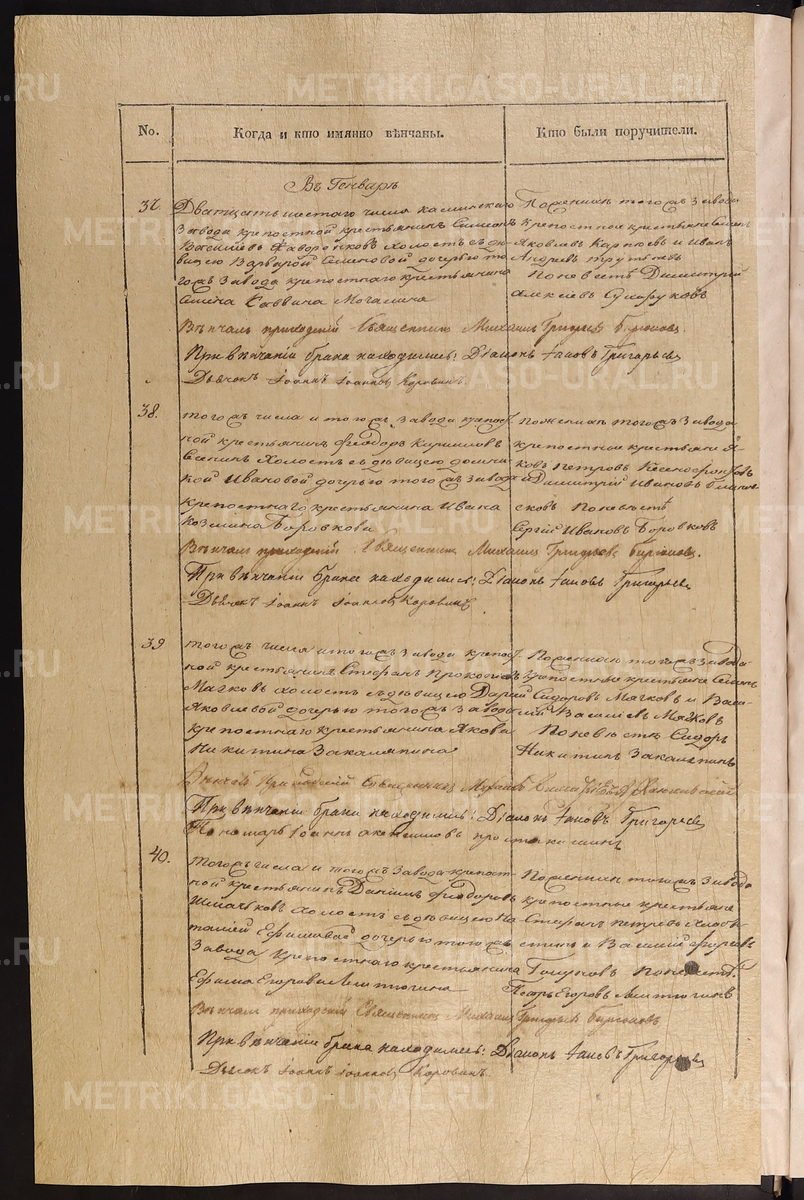 No.
Когда и кто имянно вѣнчаны.
Кто были поручители.
Въ Генварѣ
37.
Дватцать шестаго числа каслинскаго
завода крепостной крестьянинъ Симеонъ
Васильевъ холостъ съ дѣ-
вицею Варварой Семеновой дочерью то
гожъ завода крепостнаго крестьянина
Семена Саввина
Поженихѣ тогожъ завода
крепостные крестьяне
Яковлевъ Карповъ и Иванъ
Андреевъ
Поневестѣ Димитрий
Алексѣевъ Сухоруковъ
Вѣнчалъ приходский Священникъ Михаилъ Григорьевъ Бирюковъ
При вѣнчании брака находились: Діаконъ Іаковъ Григорьевъ
Дьячокъ Іоаннъ Іоанновъ Коровинъ.
38.
тогожъ числа и тогожъ завода крепост
ной крестьянинъ Феодоръ Кириловъ
холостъ съ дѣвицею домни-
кой Ивановой дочерью тогожъ завода
крепостнаго крестьянина Ивана
козмина Боровкова
Поженихѣ тогожъ завода
крепостные крестьяне Я-
ковъ Петровъ Ксенофонтовъ
и Димитрий Ивановъ
Поневестѣ
Сергій Ивановъ Боровковъ
Вѣнчалъ приходский Священникъ Михаилъ Григорьевъ Бирюковъ.
При вѣнчании брака находились: Діаконъ Іаковъ Григорьевъ
Дьячокъ Іоаннъ Іоанновъ Коровинъ.
39
тогожъ числа и тогожъ завода крепост
ной крестьянинъ Стефанъ Прокопьевъ
Мячковъ холостъ съ дѣвицею Дарьей
Яковлевой дочерью тогожъ завода
крепостнаго крестьянина Якова
Никитина Закаляпина
Поженихѣ тогожъ завода
крепостные крестьяне Семенъ
Сидоровъ Мячковъ и Васи-
лий Васильевъ Мячковъ
Поневестѣ Сидоръ
Никитинъ Закаляпинъ
Вѣнчалъ Приходский Священникъ Михаилъ
При вѣнчании брака находились: Діаконъ Іаковъ Григорьевъ
Пономарь Іоаннъ
40.
тогожъ числа и тогожъ завода крепост-
ной крестьянинъ Даніилъ Феодоровъ
холостъ съ дѣвицею На-
талией Ефимовой дочерью тогожъ
завода крепостнаго крестьянина
Ефима Егорова Аштюгина
Поженихѣ тогожъ завода
крепостные крестьяне
Стефанъ Петровъ
и Василий
Поневестѣ
Петръ Егоровъ Аштюгинъ
Вѣнчалъ приходский Священникъ Михаилъ Григорьевъ Бирюковъ
При вѣнчании брака находились: Діаконъ Іаковъ Григорьевъ
Дьячокъ Іоаннъ Іоанновъ Коровинъ.
METRIKI.GASO-URAL.RU